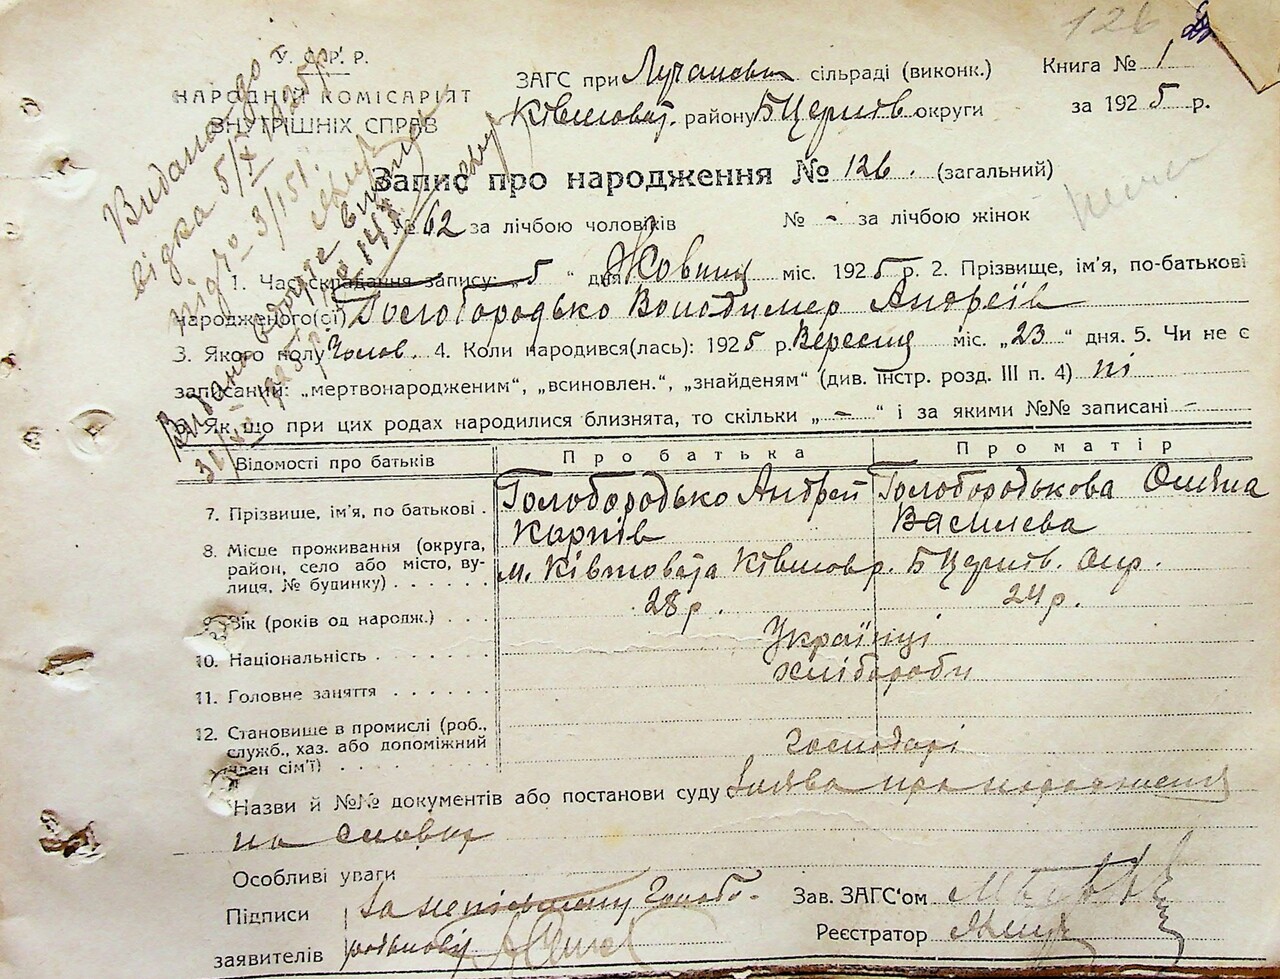 126
У. С. Р. Р.
НАРОДНІЙ КОМІСАРІЯТ
ВНУТРІШНІХ СПРАВ
ЗАГС при сільраді (виконк.)
Книга № 1
району Б Церків округи
за 1925 р.
Запис про народження № 126. (загальний)
№ 62 за лічбою чоловіків № - за лічбою жінок
1. Час складання запису: „5“ дня Жовтня міс. 1925 р. 2. Прізвище, ім'я, по-батькові
народженого(сі) Голобородько Володимер Андреїв
3. Якого полу Чолов. 4. Коли народився(лась): 1925 р. Вересня міс. „23“ дня. 5. Чи не є
записаний: „мертвонародженим“, „всиновлен.“, „знайденям“ (див. інстр. розд. III п. 4) ні
6. Як що при цих родах народилися близнята, то скільки „ - “ і за якими №№ записані -
Відомості про батьків
Про батька
Про матір
7. Прізвище, ім'я, по батькові .
Голобородько Андрей
Карпів
Голобородькова Оляна
Василева
8. Місце проживання (округа,
район, село або місто, ву-
лиця, № будинку) . . . . . .
м. Ківшовата Ківшов р. Б Церків. окр.
9. Вік (років од народж.) . . .
28 р.
24 р.
10. Національність . . . . . . .
Українці
11. Головне заняття . . . . . .
хлібороби
12. Становище в промислі (роб.,
служб., хаз. або допоміжний
член сім'ї) . . . . . . . . .
Господарі
Назви й №№ документів або постанови суду Заява про народження
на словах
Особливі уваги
Підписи
заявителів
За неписьменну Голобо-
родькову
Зав. ЗАГС'ом
Реєстратор
Видано